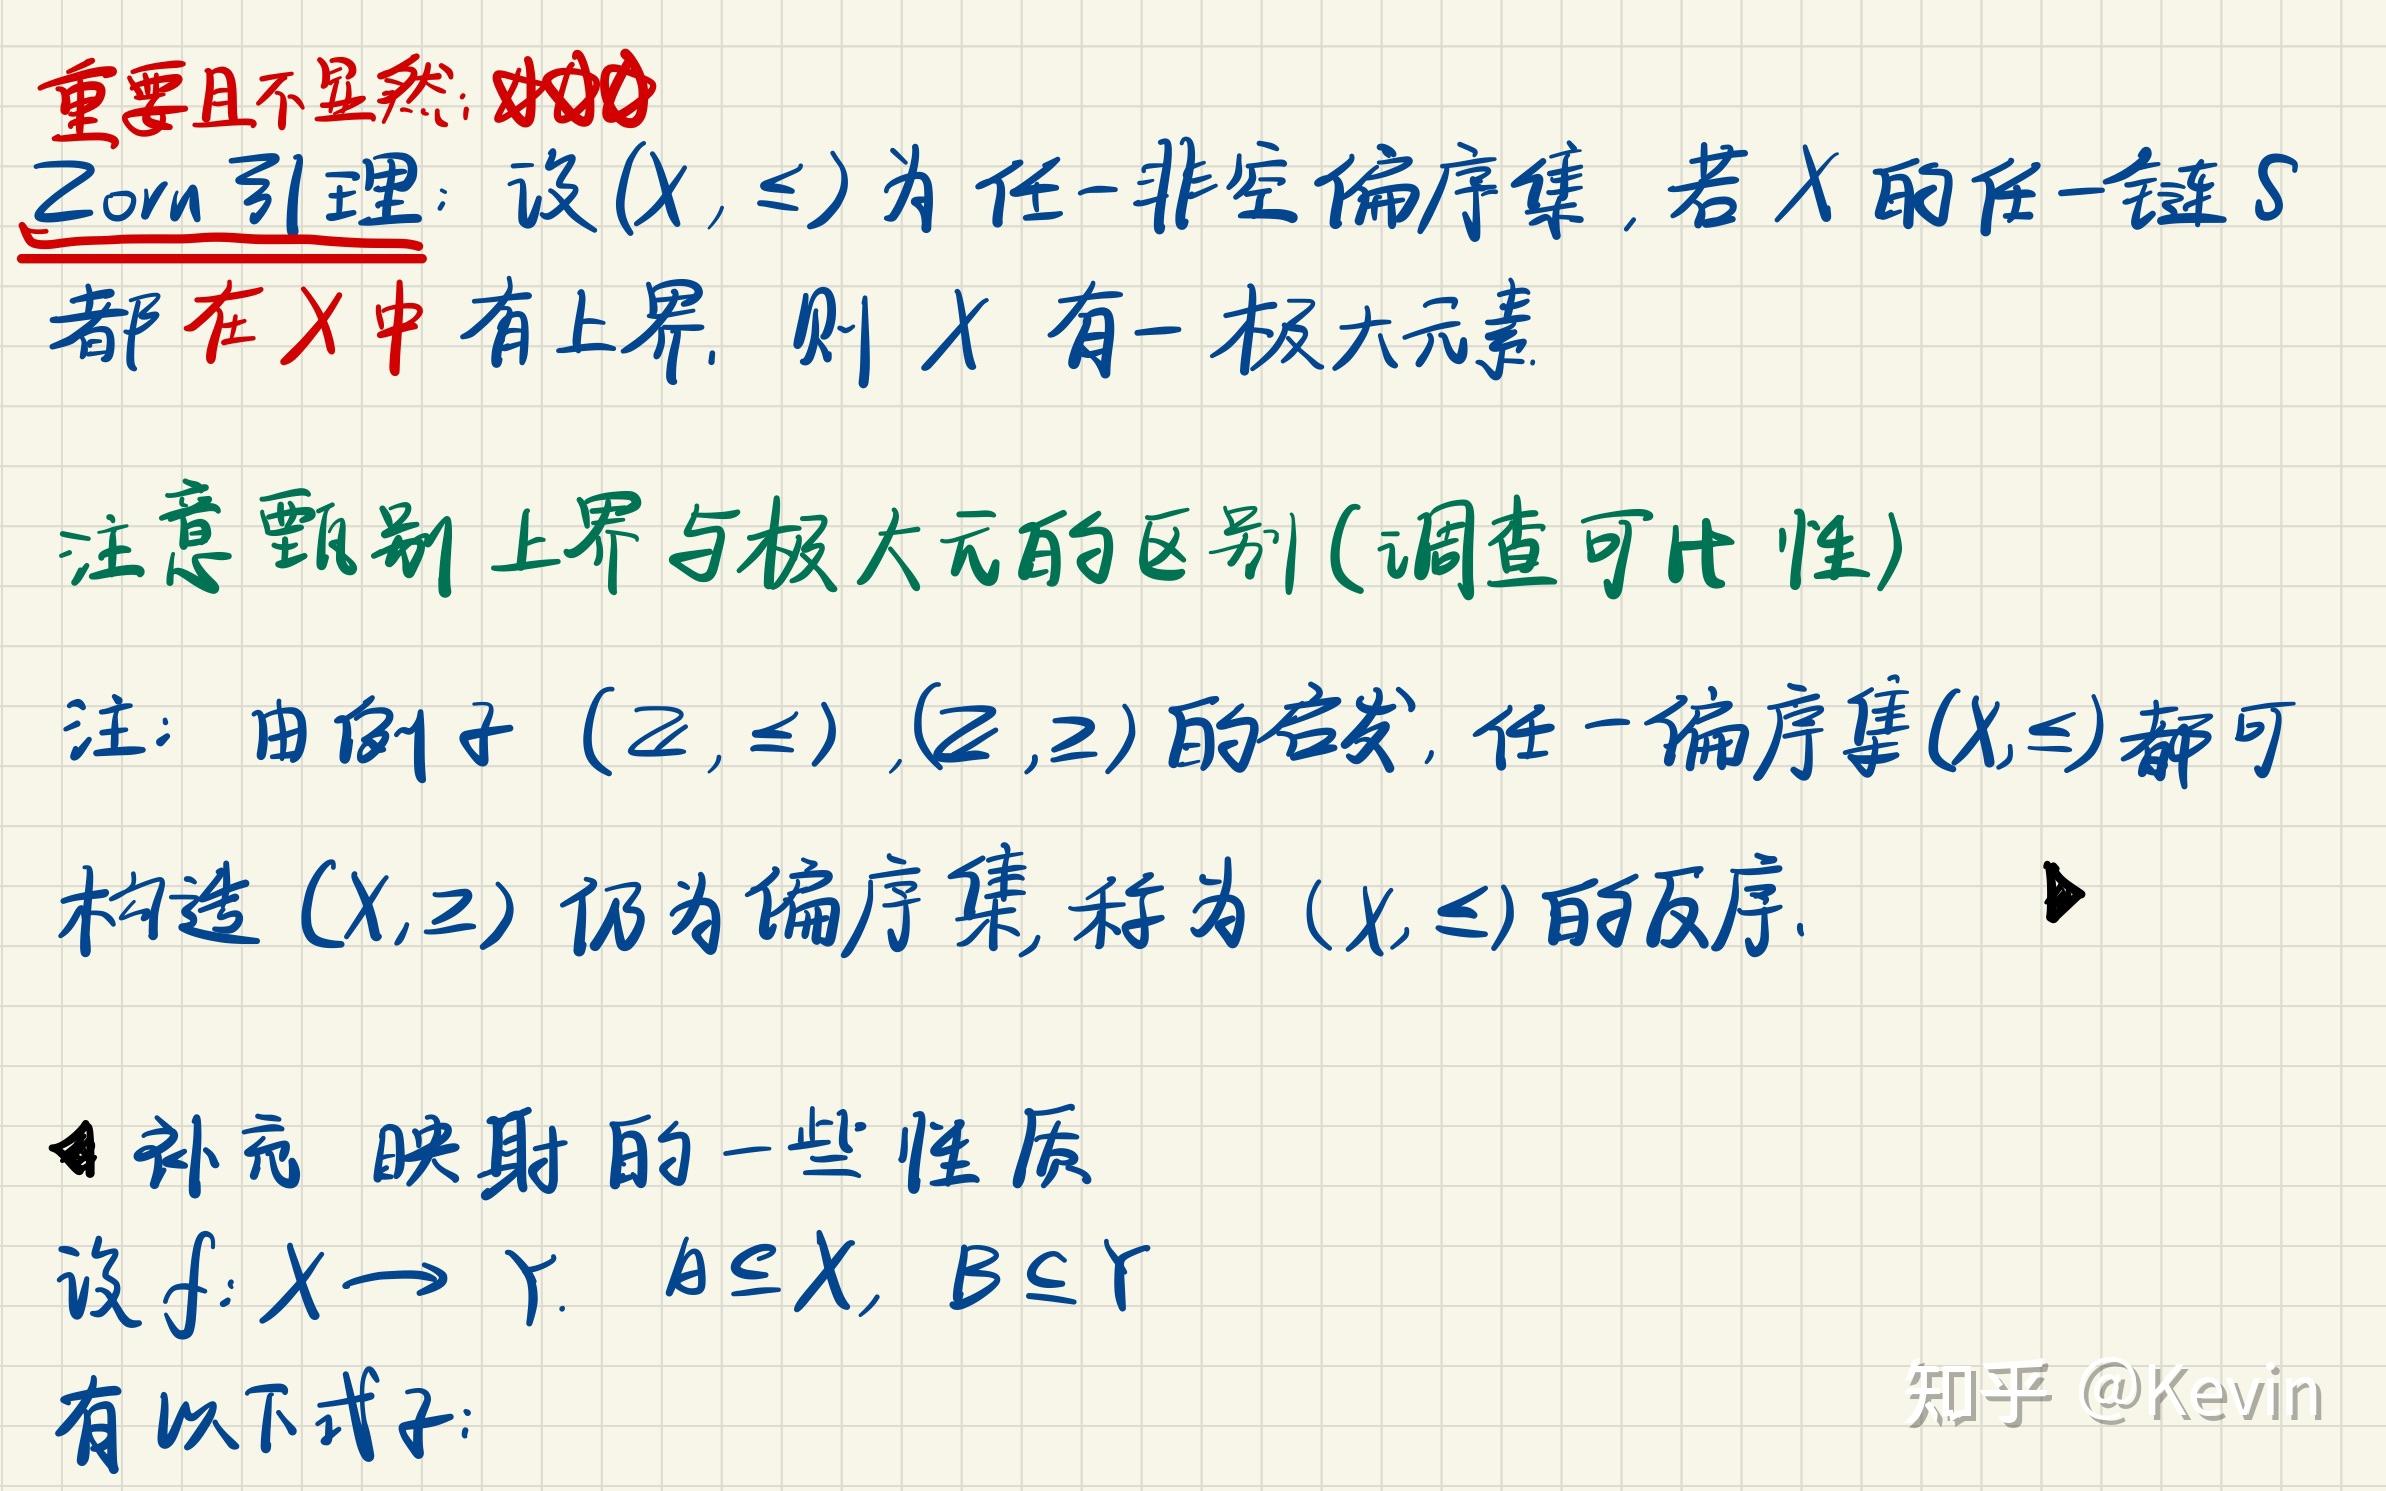 重要且不显然:
Zorn引理: 设(X, ≤)为任一非空偏序集, 若X的任一链S
都在X中有上界, 则X有一极大元素.
注意甄别上界与极大元的区别(调查可比性)
注: 由例子 (Z, ≤), (Z, ≥)的启发, 任一偏序集(X, ≤)都可
构造(X, ≥)仍为偏序集, 称为(X, ≤)的反序.
补充 映射的一些性质
设f: X → Y. A⊆X, B⊆Y
有以下式子:
知乎 @Kevin